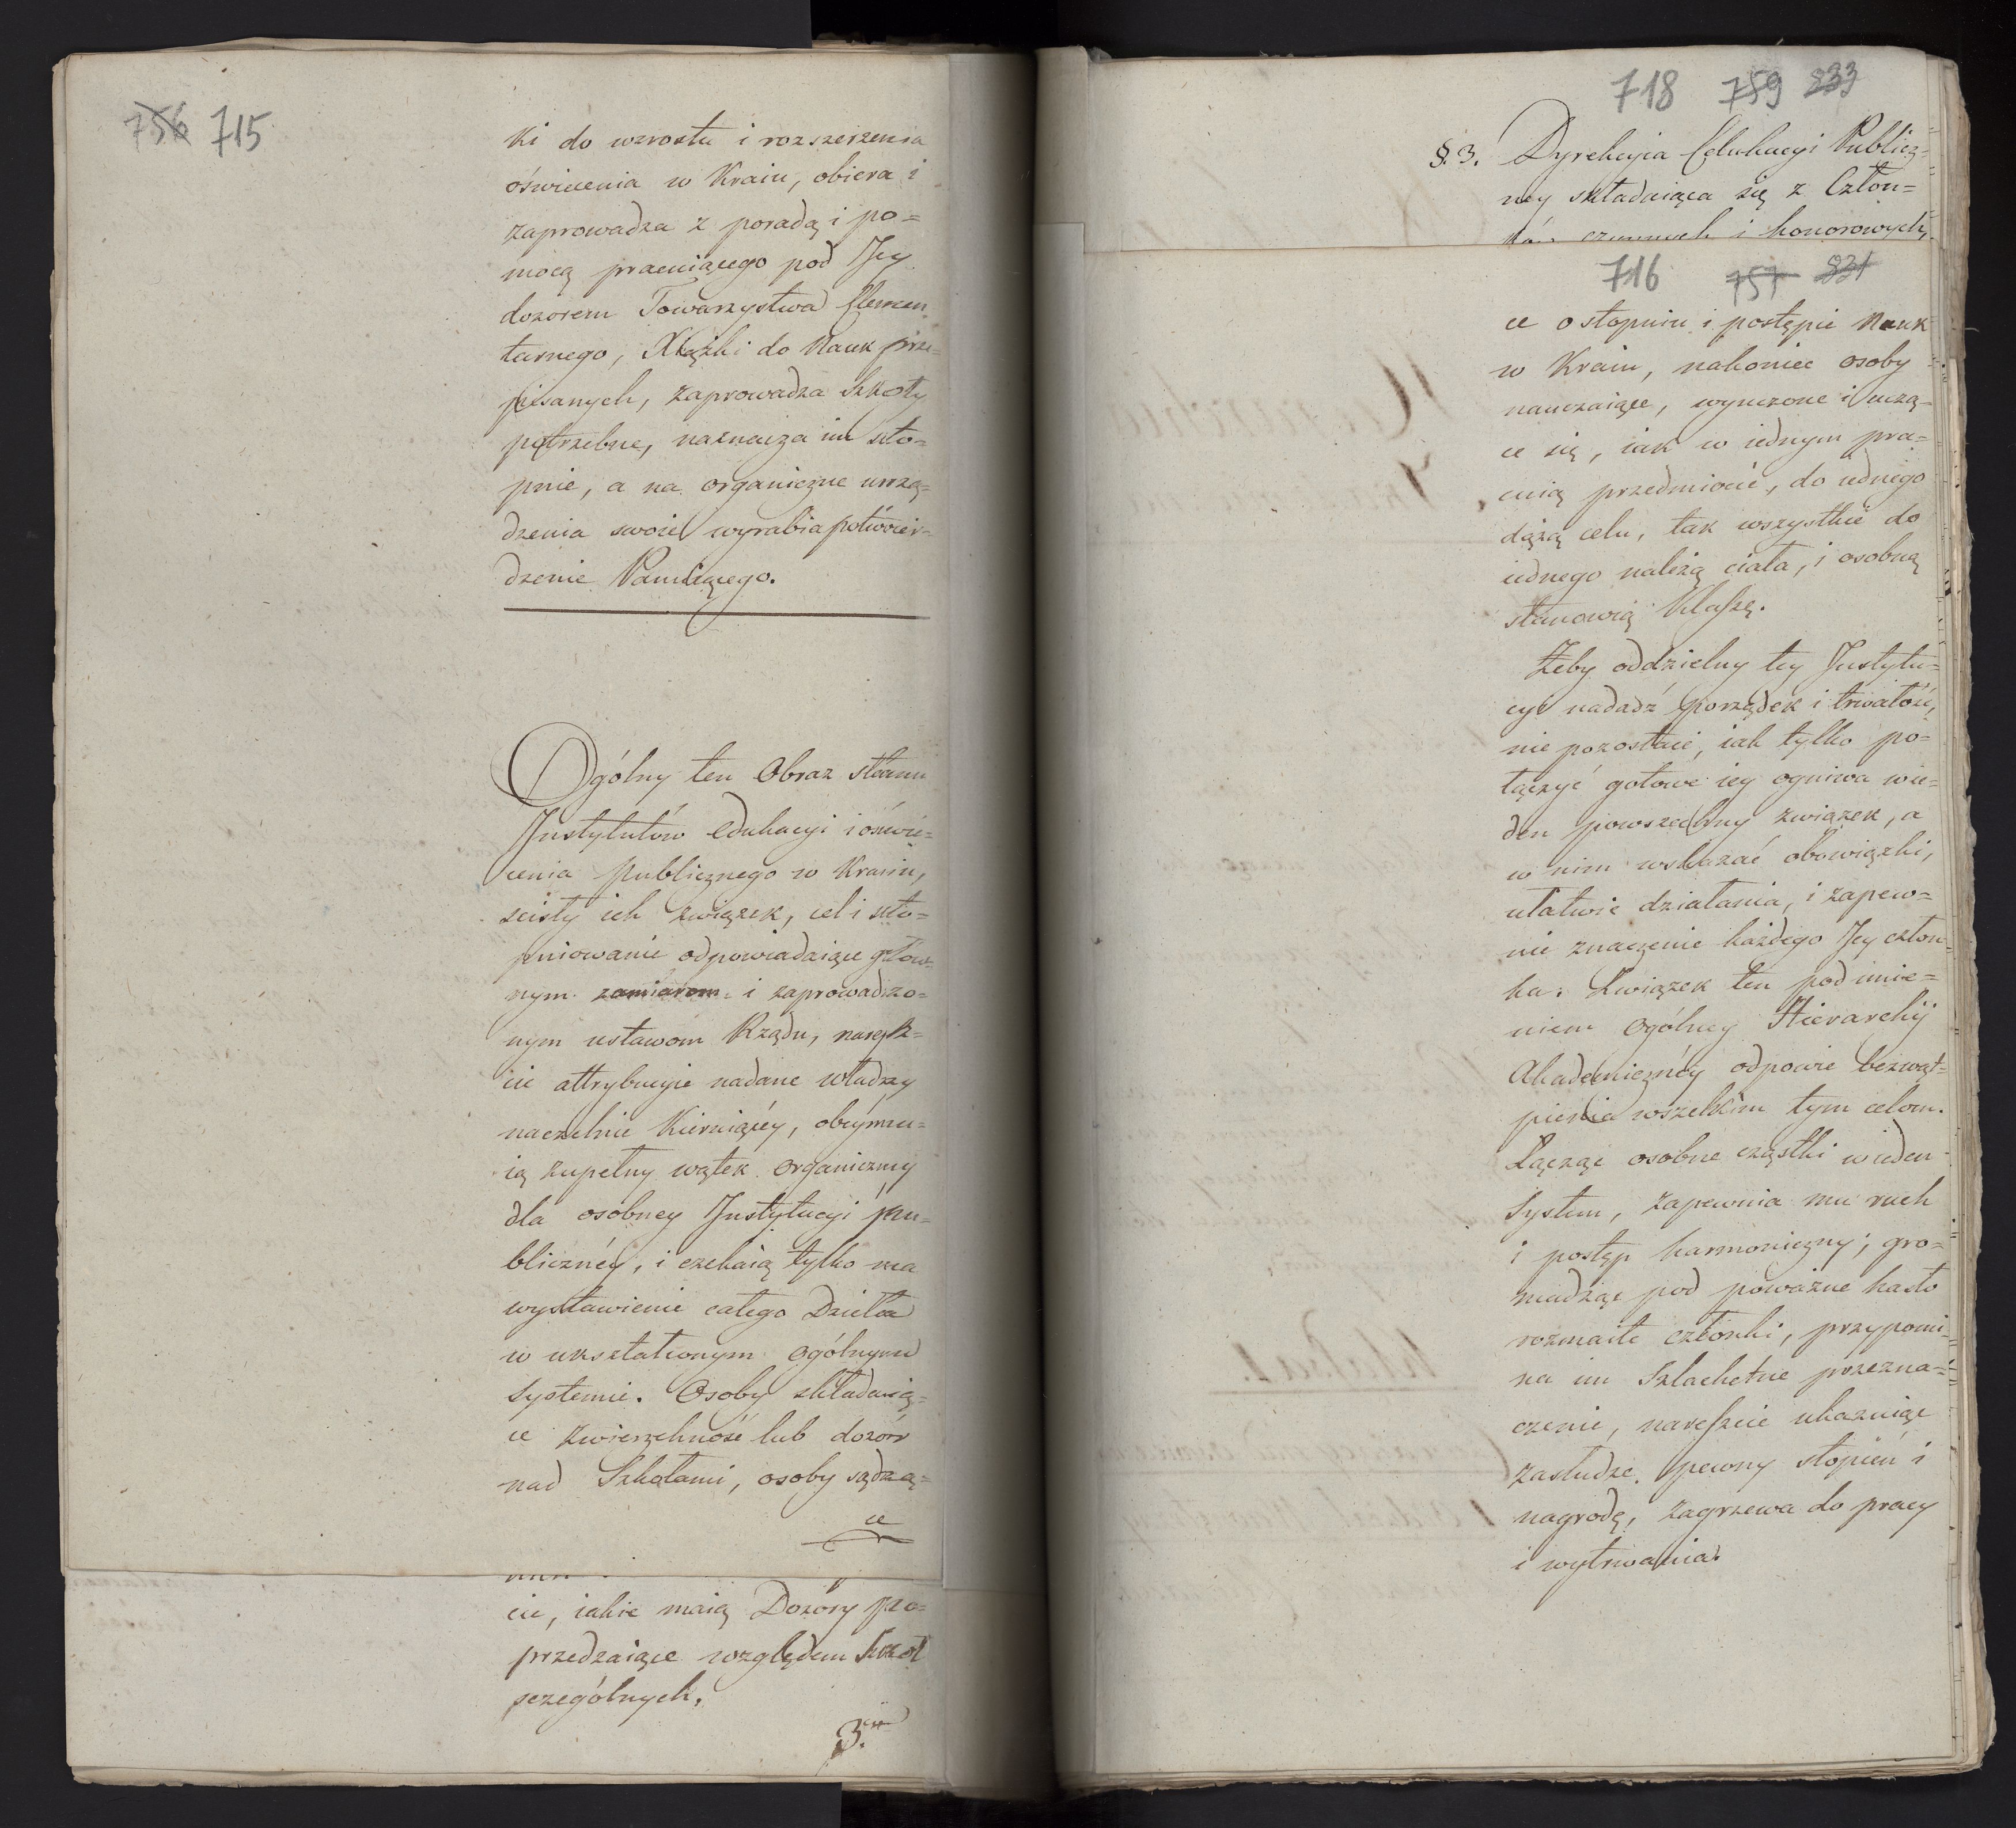 756 715
ki do wzrostu i rozszerzenia
oświecenia w Kraiu, obiera i
zaprowadza z poradą i po=
mocą pracuiącego pod Jey
dozorem Towarzystwa Elemen
tarnego, Xiążki do Nauk prze=
pisanych, zaprowadza Szkoły
potrzebne, naznacza im sto=
pnie, a na organiczne urzą=
dzenia swoie wyrabia potwier=
dzenie Panuiącego.
Ogólny ten Obraz stanu
Instytutów edukacyi i oświe=
cenia publicznego w Kraiu,
scisły ich związek, cel i sto=
pniowanie odpowiadaiące głów=
nym zamiarom i zaprowadzo=
nym ustawom Rządu, naręsz=
cie attrybucyie nadane władzy
naczelnie Kieruiącéy, obéymu=
ią zupełny wątek organiczny
dla osobney Instytucyi pu=
blicznéy, i czekaią tylko na
wystawienie całego Dzieła
w ukształconym ogólnym
systemie. Osoby składaią=
ce zwierzchność lub dozór
nad Szkołami, osoby sądzą=
ce
cie, iakie maią Dozory po=
przedzaiące względem Szkół
szczególnych.
3.
718 759 833
§. 3. Dyrekcyia Edukacyi Publicz=
ney składaiąca się z Człon=
ków czynnych i honorowych,
716 757 831
ce o stopniu i postępie Nauk
w Kraiu, nakoniec osoby
nauczaiące, wyuczone i uczą=
ce się, iak w iednym pra=
cuią przedmiocie, do iednego
dążą celu, tak wszystkie do
iednego należą ciała, i osobną
stanowią Klassę.
Żeby oddzielny tey Instytu=
cyi nadadź porządek i trwałość,
nie pozostaie, iak tylko po=
łączyć gotowe iey ogniwa w ie=
den powszechny związek, a
w nim wskazać obowiązki,
ułatwić działania, i zapew=
nić znaczenie każdego Jey człon=
ka. Związek ten pod imie=
niem ogólney Hierarchij
Akademicznéy odpowie bezwąt=
pienia wszelkim tym celom.
Łącząc osobne cząstki w ieden
System, zapewnia mu ruch
i postęp harmoniczny; gro=
madząc pod poważne hasło
rozmaite członki, przypomi=
na im Szlachetne przezna=
czenie, nareszcie ukazuiąc
zasłudze pewny stopień i
nagrodę, zagrzewa do pracy
i wytrwania.